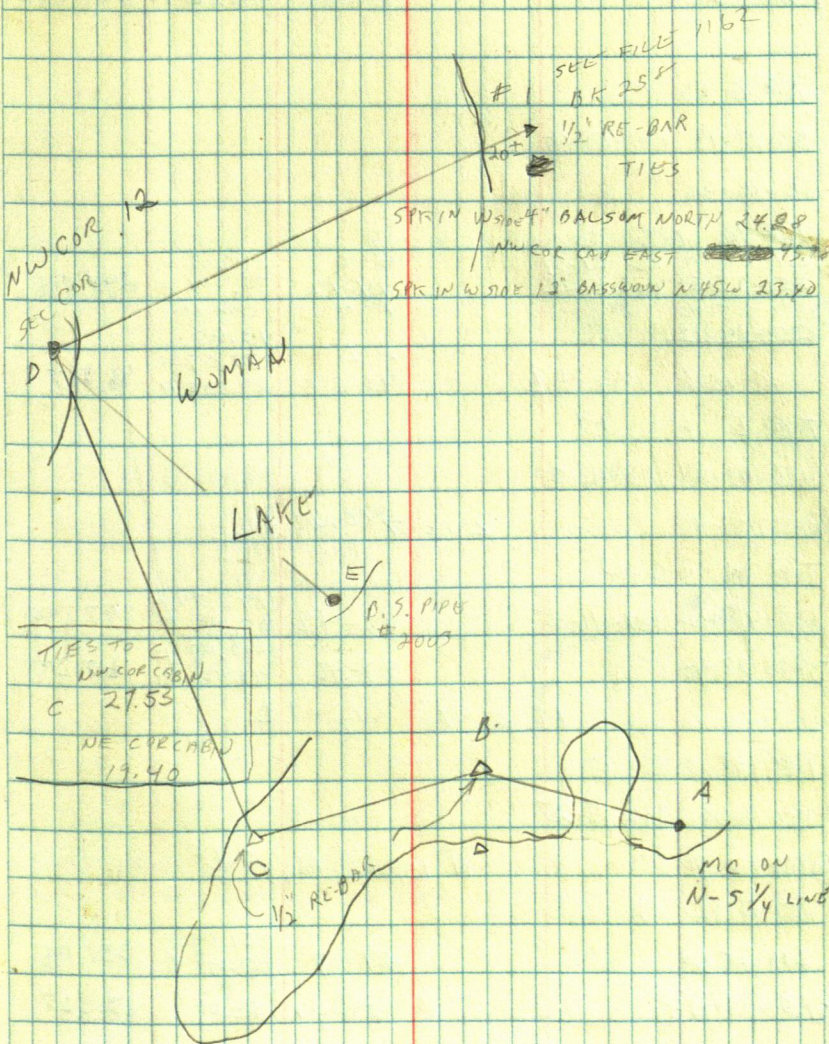 SEE FILE 1162
# 1 BK 258
1/2" RE-BAR
20±
TIES
SPK IN W SIDE 4" BALSOM NORTH 24.28
NW COR CAB EAST
SPK IN W SIDE 12" BASSWOUN N 45W 23.40
NW COR 12
SEC COR
D
WOMAN
LAKE
E
B.S. PIPE
# 2003
TIES TO C
NW COR CABIN
C 27.53
NE COR CABIN
19.40
B
A
C
1/2" RE-BAR
MC ON
N-S 1/4 LINE